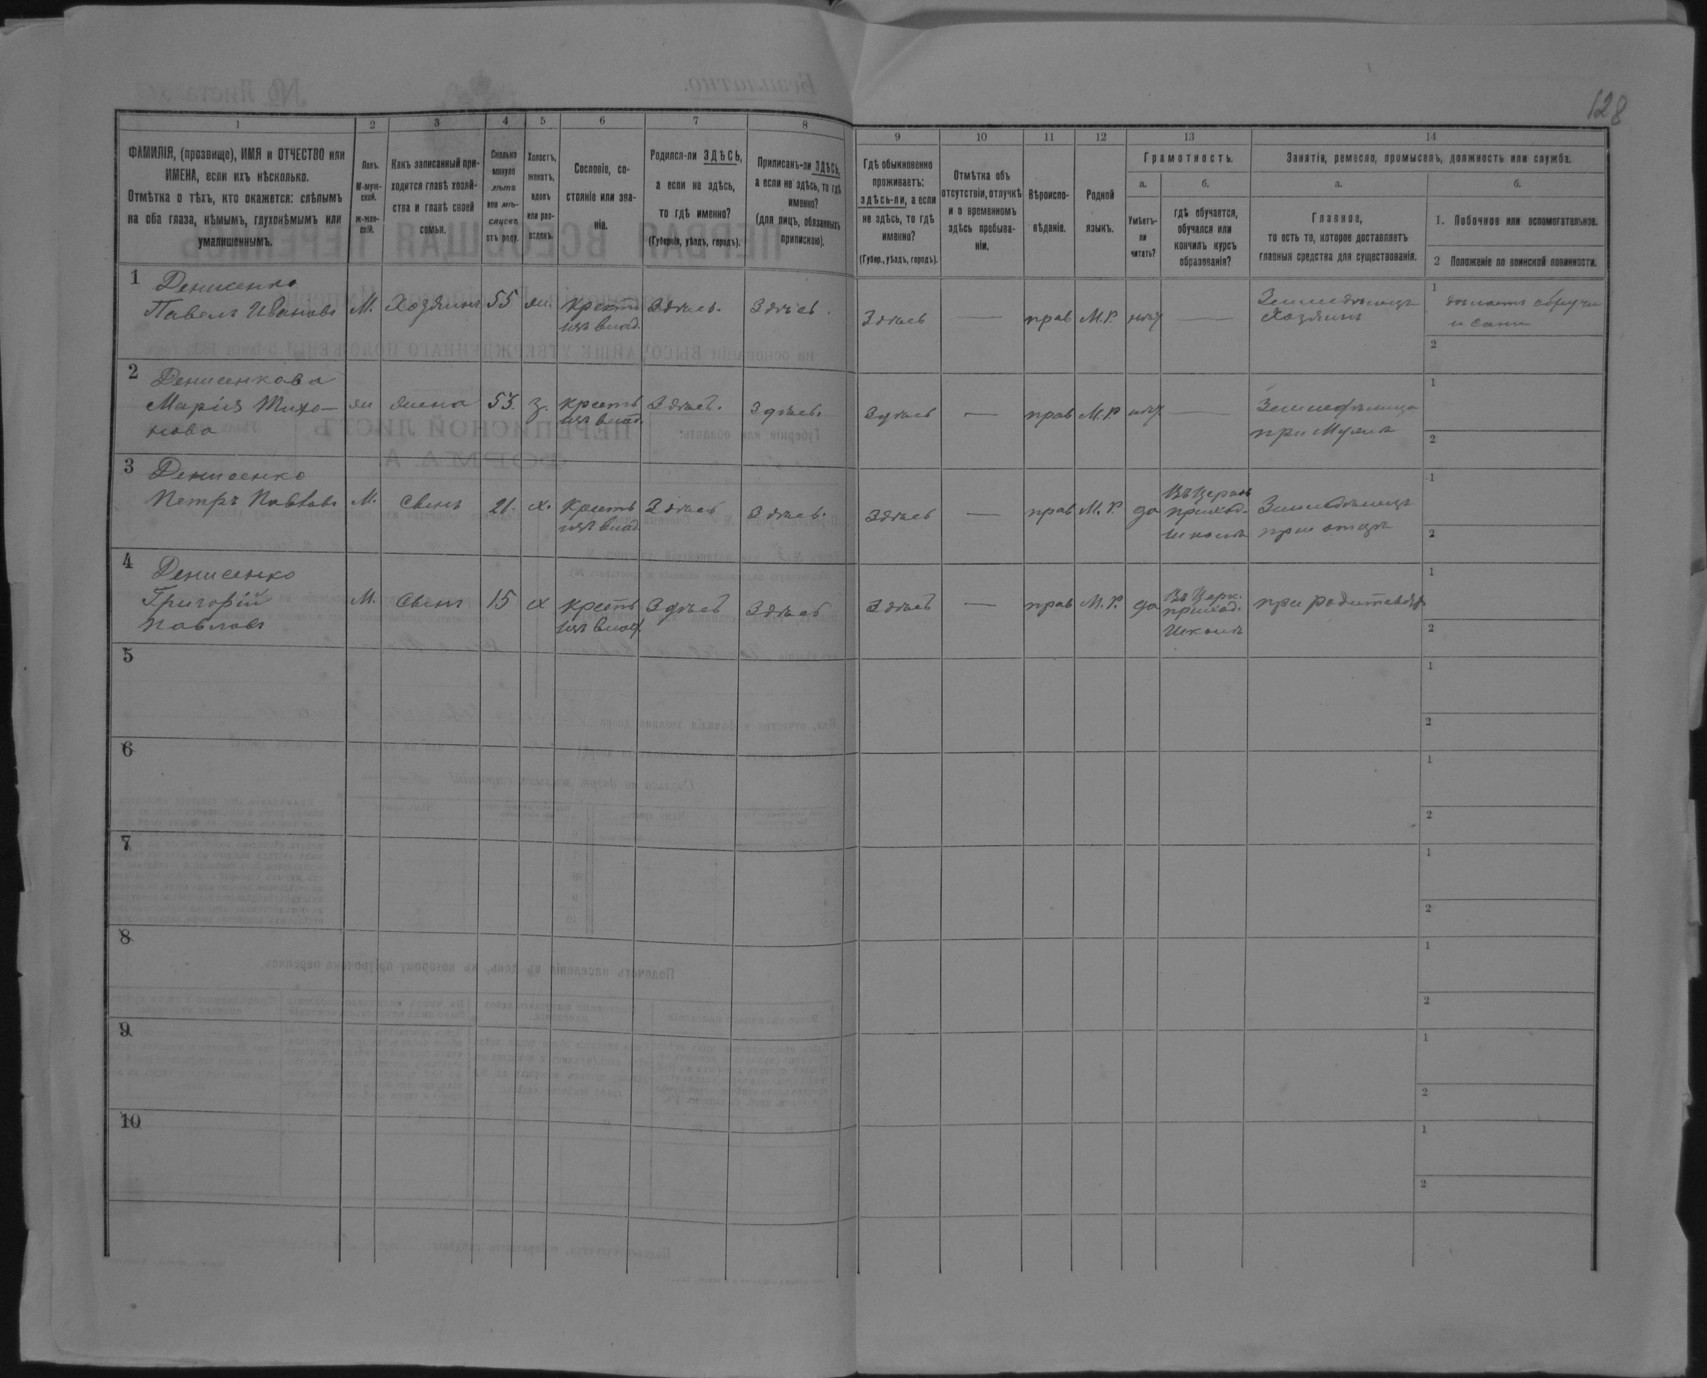 128
1 2 3 4 5 6 7 8 9 10 11 12 13 14
ФАМИЛІЯ, (прозвище), ИМЯ и ОТЧЕСТВО или
ИМЕНА, если ихъ нѣсколько.
Отмѣтка о тѣхъ, кто окажется: слѣпымъ
на оба глаза, нѣмымъ, глухонѣмымъ или
умалишеннымъ.
Полъ.
М-муж-
ской.
ж-жен-
скій.
Какъ записанный при-
ходится главѣ хозяй-
ства и главѣ своей
семьи.
Сколько
минуло
лѣтъ
или мѣ-
сяцевъ
отъ роду.
Холостъ,
женатъ,
вдовъ
или раз-
веденъ.
Сословіе, со-
стояніе или зва-
ніе.
Родился-ли ЗДѢСЬ,
а если не здѣсь,
то гдѣ именно?
(Губернія, уѣздъ, городъ).
Приписанъ-ли ЗДѢСЬ,
а если не здѣсь, то гдѣ
именно?
(для лицъ, обязанныхъ
припискою).
Гдѣ обыкновенно
проживаетъ:
здѣсь-ли, а если
не здѣсь, то гдѣ
именно?
(Губер., уѣздъ, городъ).
Отмѣтка объ
отсутствіи, отлучкѣ
и о временномъ
здѣсь пребыва-
ніи.
Вѣроиспо-
вѣданіе.
Родной
языкъ.
Грамотность.
а.
Умѣетъ-
ли
читать?
б.
гдѣ обучается,
обучался или
кончилъ курсъ
образованія?
Занятіе, ремесло, промыселъ, должность или служба.
а.
Главное,
то есть то, которое доставляетъ
главныя средства для существованія.
б.
1. Побочное или вспомогательное.
2 Положеніе по воинской повинности.
1 Денисенко
Павелъ Ивановъ М. Хозяинъ 55 жн. Крест. Здѣсь. Здѣсь. Здѣсь — прав М.Р. нѣтъ — Землед ѣлецъ
изъ влад. Хозяинъ
1 дѣлаетъ обручи
и сани
2
2 Денисенкова
Марія Тихо-
нова жн жена 53. з. Крест. Здѣсь. Здѣсь. Здѣсь — прав М.Р. нѣтъ — Земледѣлица
изъ влад. при Мужѣ
1
2
3 Денисенко
Петръ Павловъ М. сынъ 21. х. Крест. Здѣсь Здѣсь. Здѣсь — прав М.Р. да Въ Церков
изъ влад. приход.
школѣ
Земледѣлецъ
при отцѣ
1
2
4 Денисенко
Григорій
Павловъ М. Сынъ 15 х Крест. Здѣсь Здѣсь Здѣсь — прав М.Р. да Въ Церк.
изъ влад. приход.
школѣ
при родителяхъ
1
2
5
1
2
6
1
2
7
1
2
8
1
2
9
1
2
10
1
2